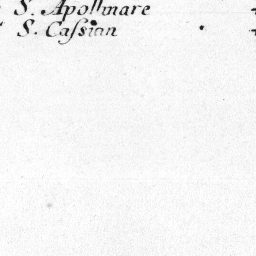 S. Apollinare
S. Caſsian